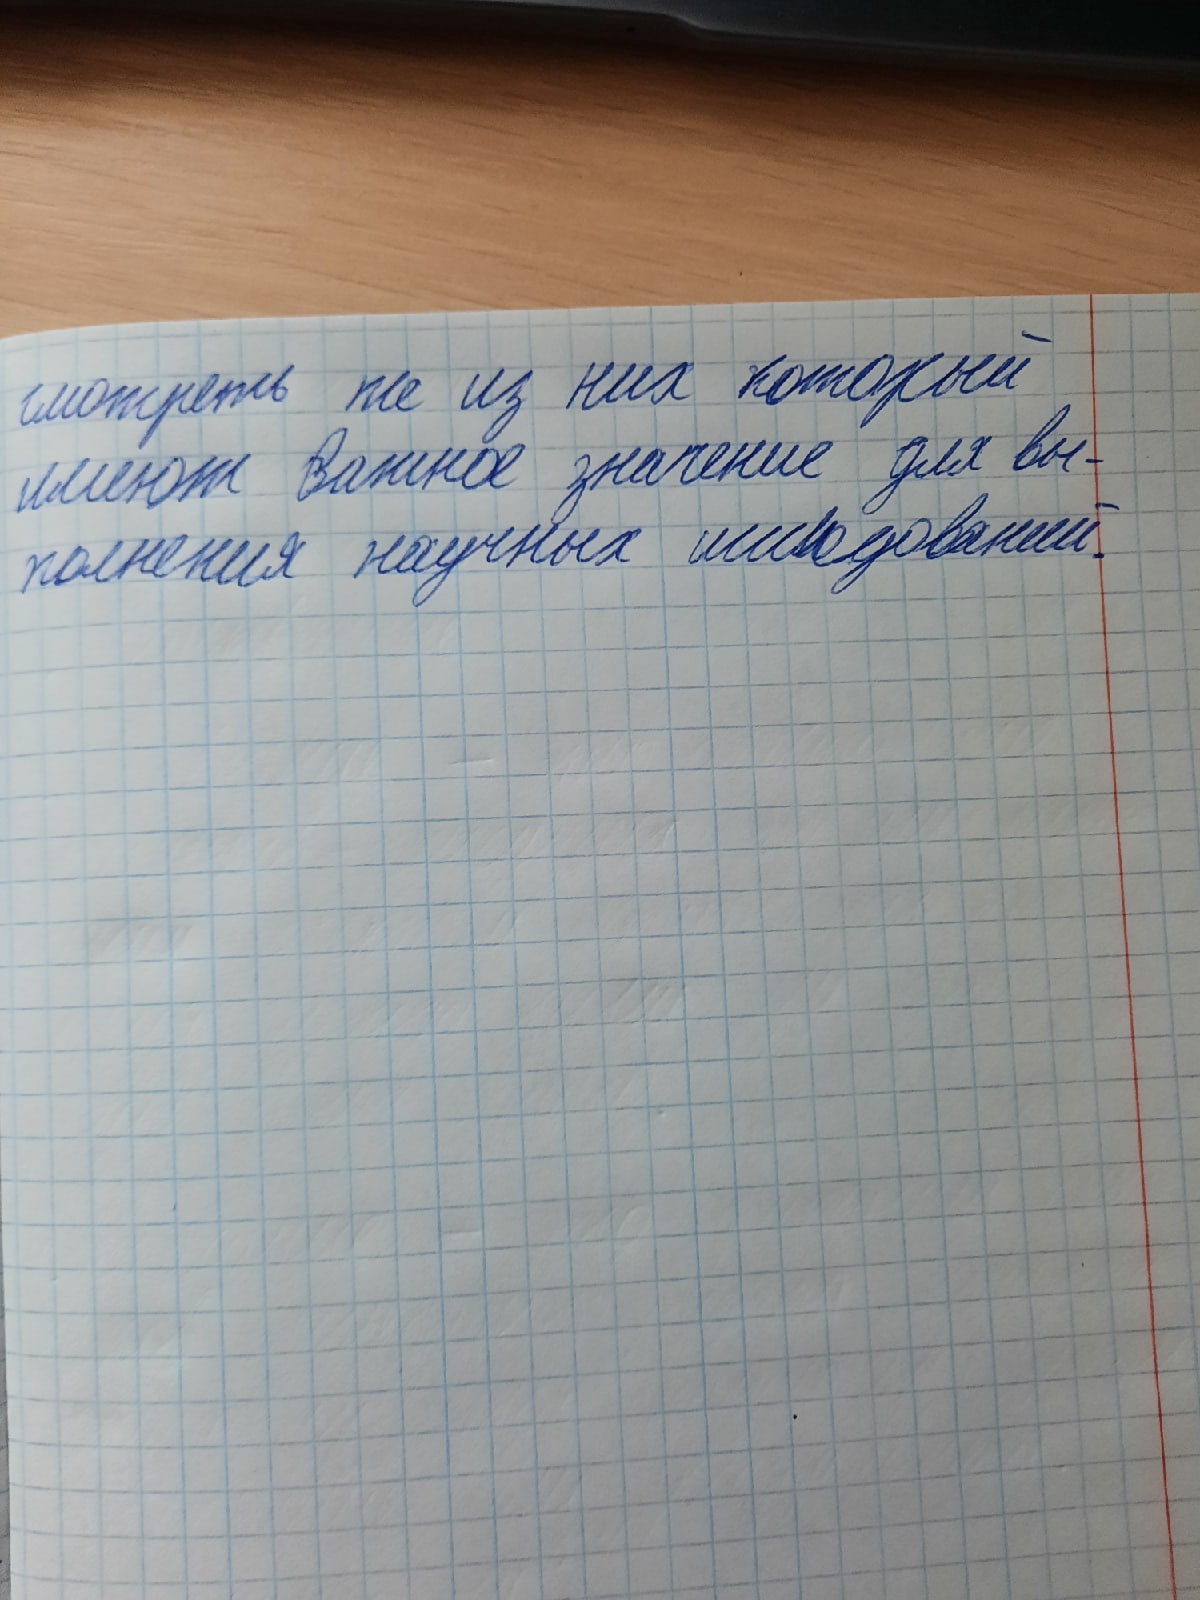 смотреть те из них который
имеют важное значение для вы-
полнения научных исследований.